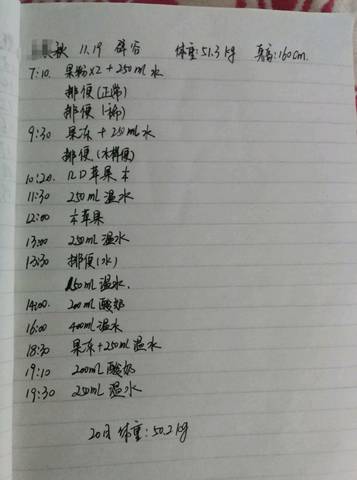 秋 11.19 辟谷 体重:51.3kg 身高:160cm.
7:10. 果粉x2+250ml水
排便(正常)
排便(稀)
9:30 果冻+250ml水
排便(水样便)
10:20. 苹果
11:30 250ml温水
12:00 苹果
13:00 250ml温水
13:30 排便(水)
150ml温水.
14:00. 200ml酸奶
16:00 400ml温水
18:30 果冻+250ml温水
19:10 200ml酸奶
19:30 250ml温水
20日体重:50.2kg